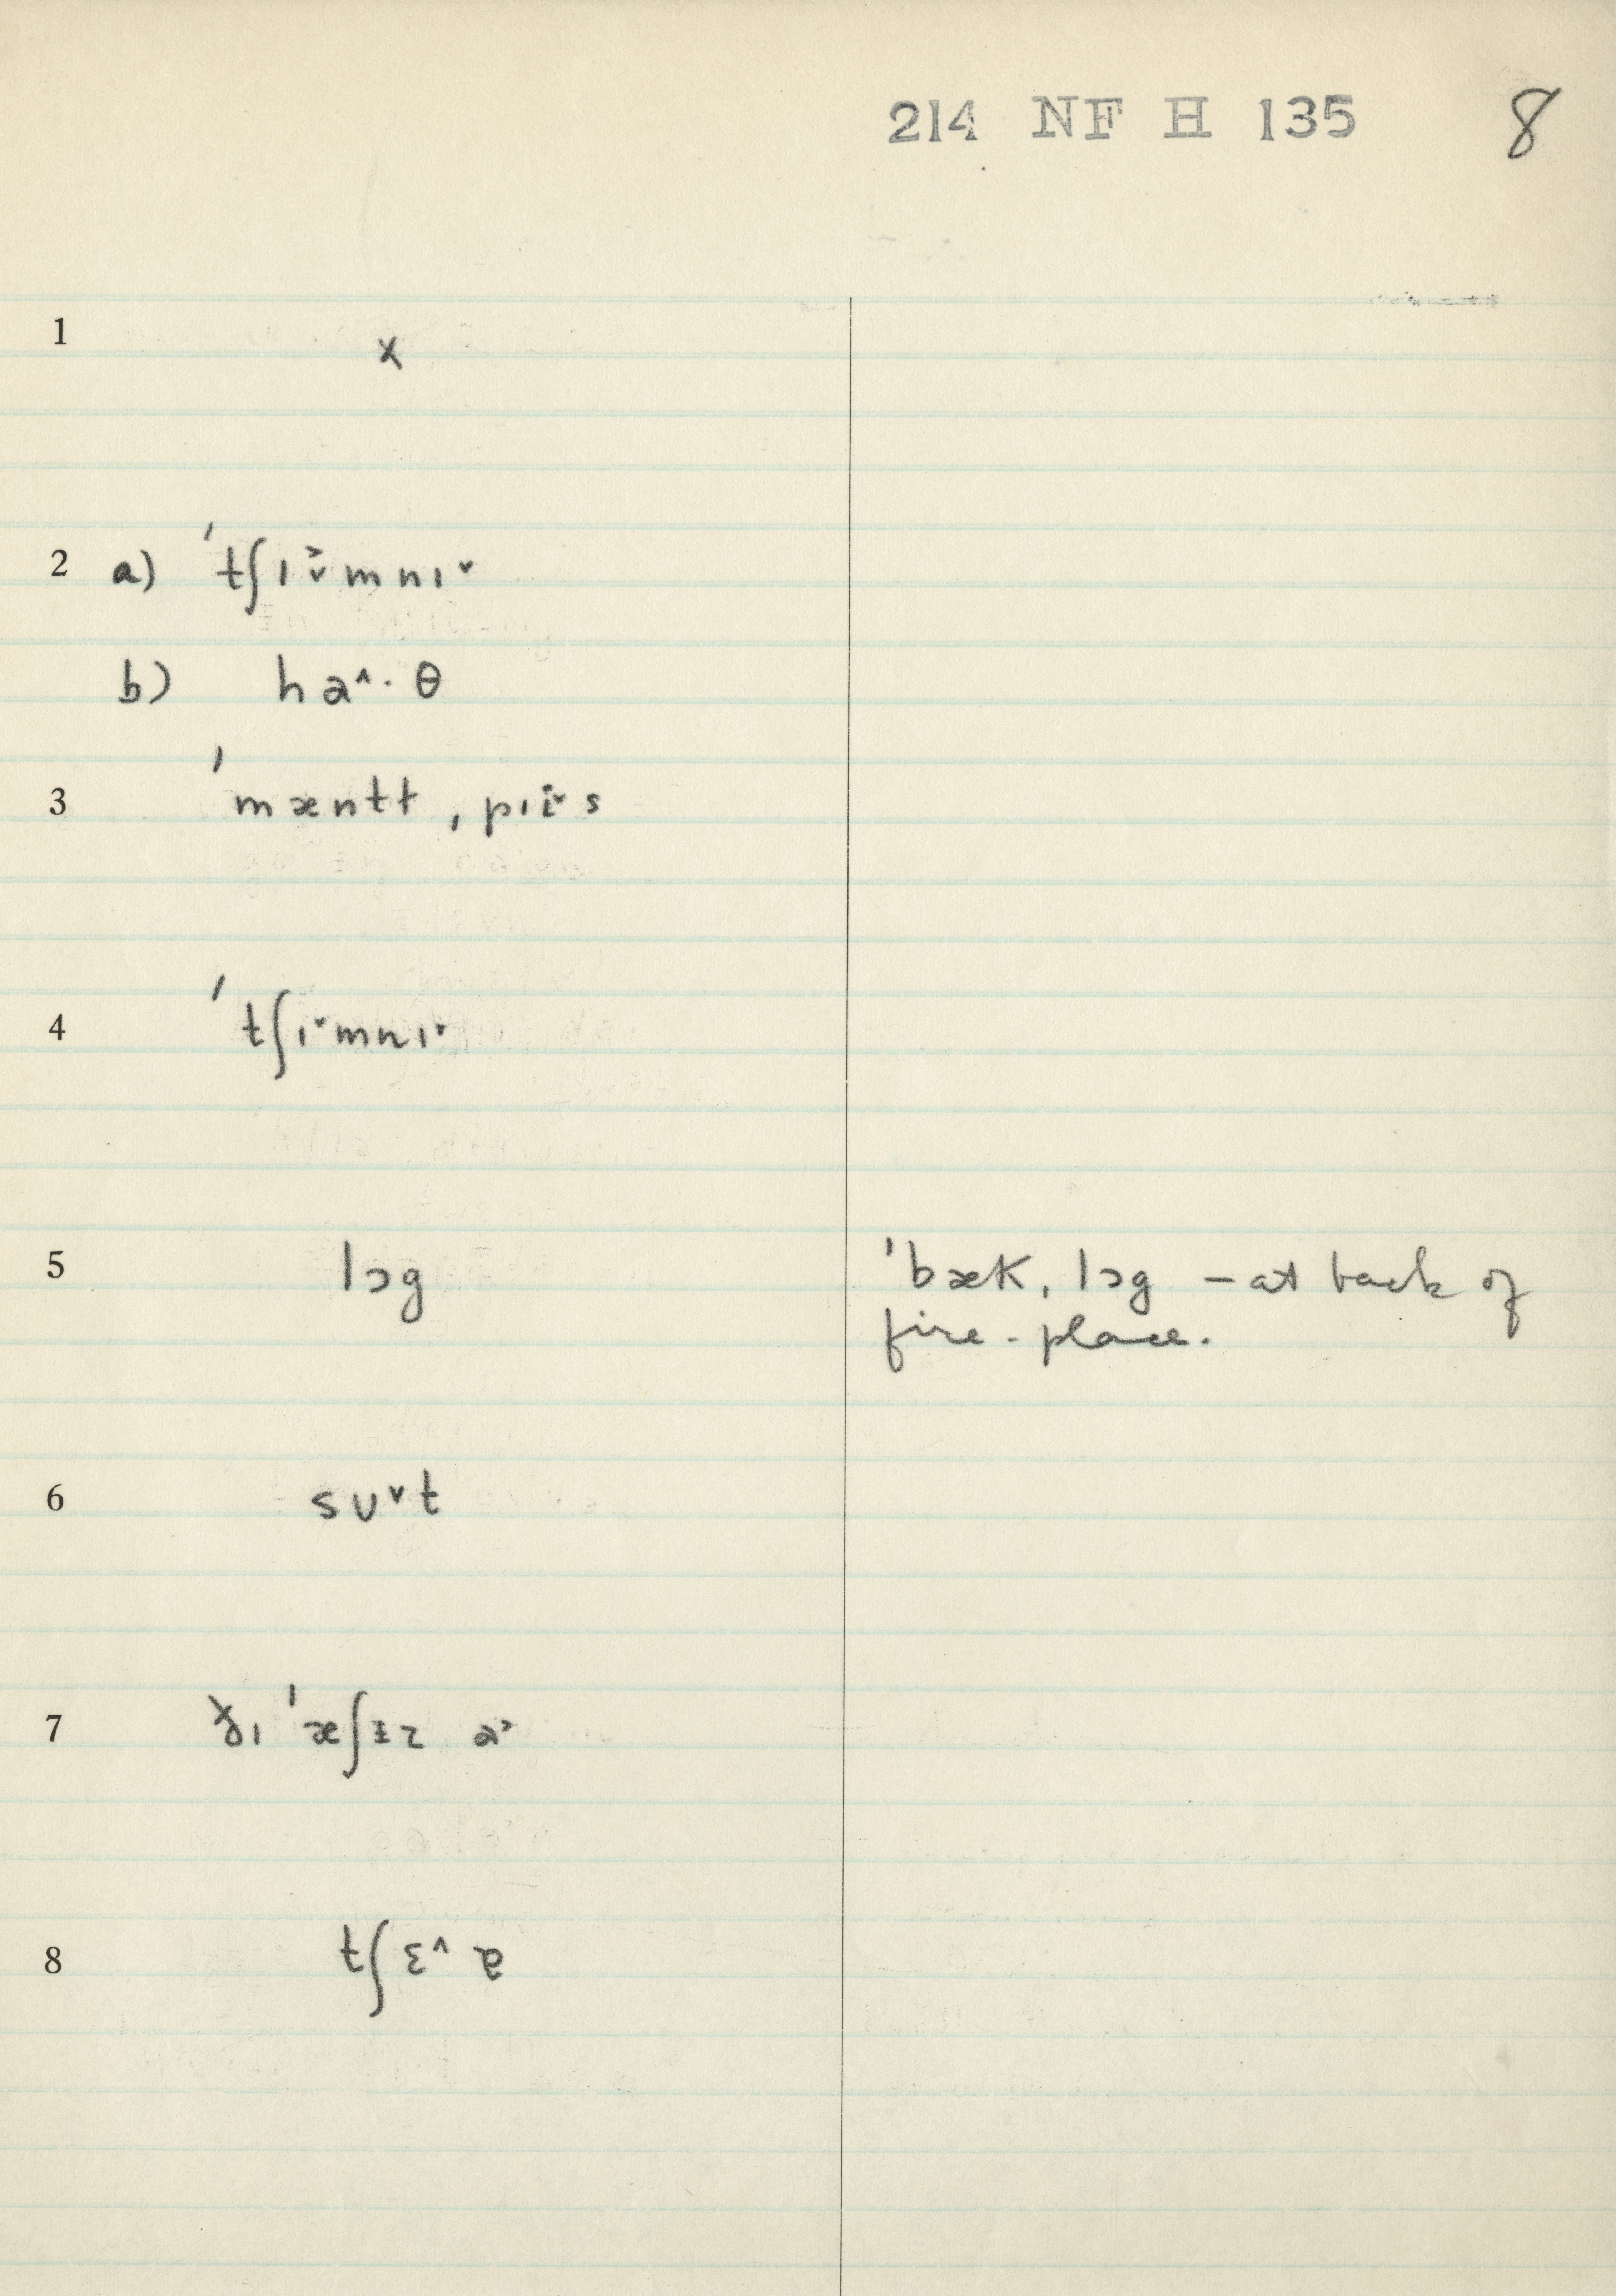 214 NF H 135 8
1 x
2 a) ˈtʃɪ˅˃mnɪ˅
b) ha^·θ
3 ˈmæntt ˌpɪi˅s
4 ˈtʃɪ˅mnɪ˅
5 lɔg ˈbæk ˌlɔg – at back of
fire-place.
6 sʊ˅t
7 ˈæʃɪz a˃
8 tʃɛ^ɐ